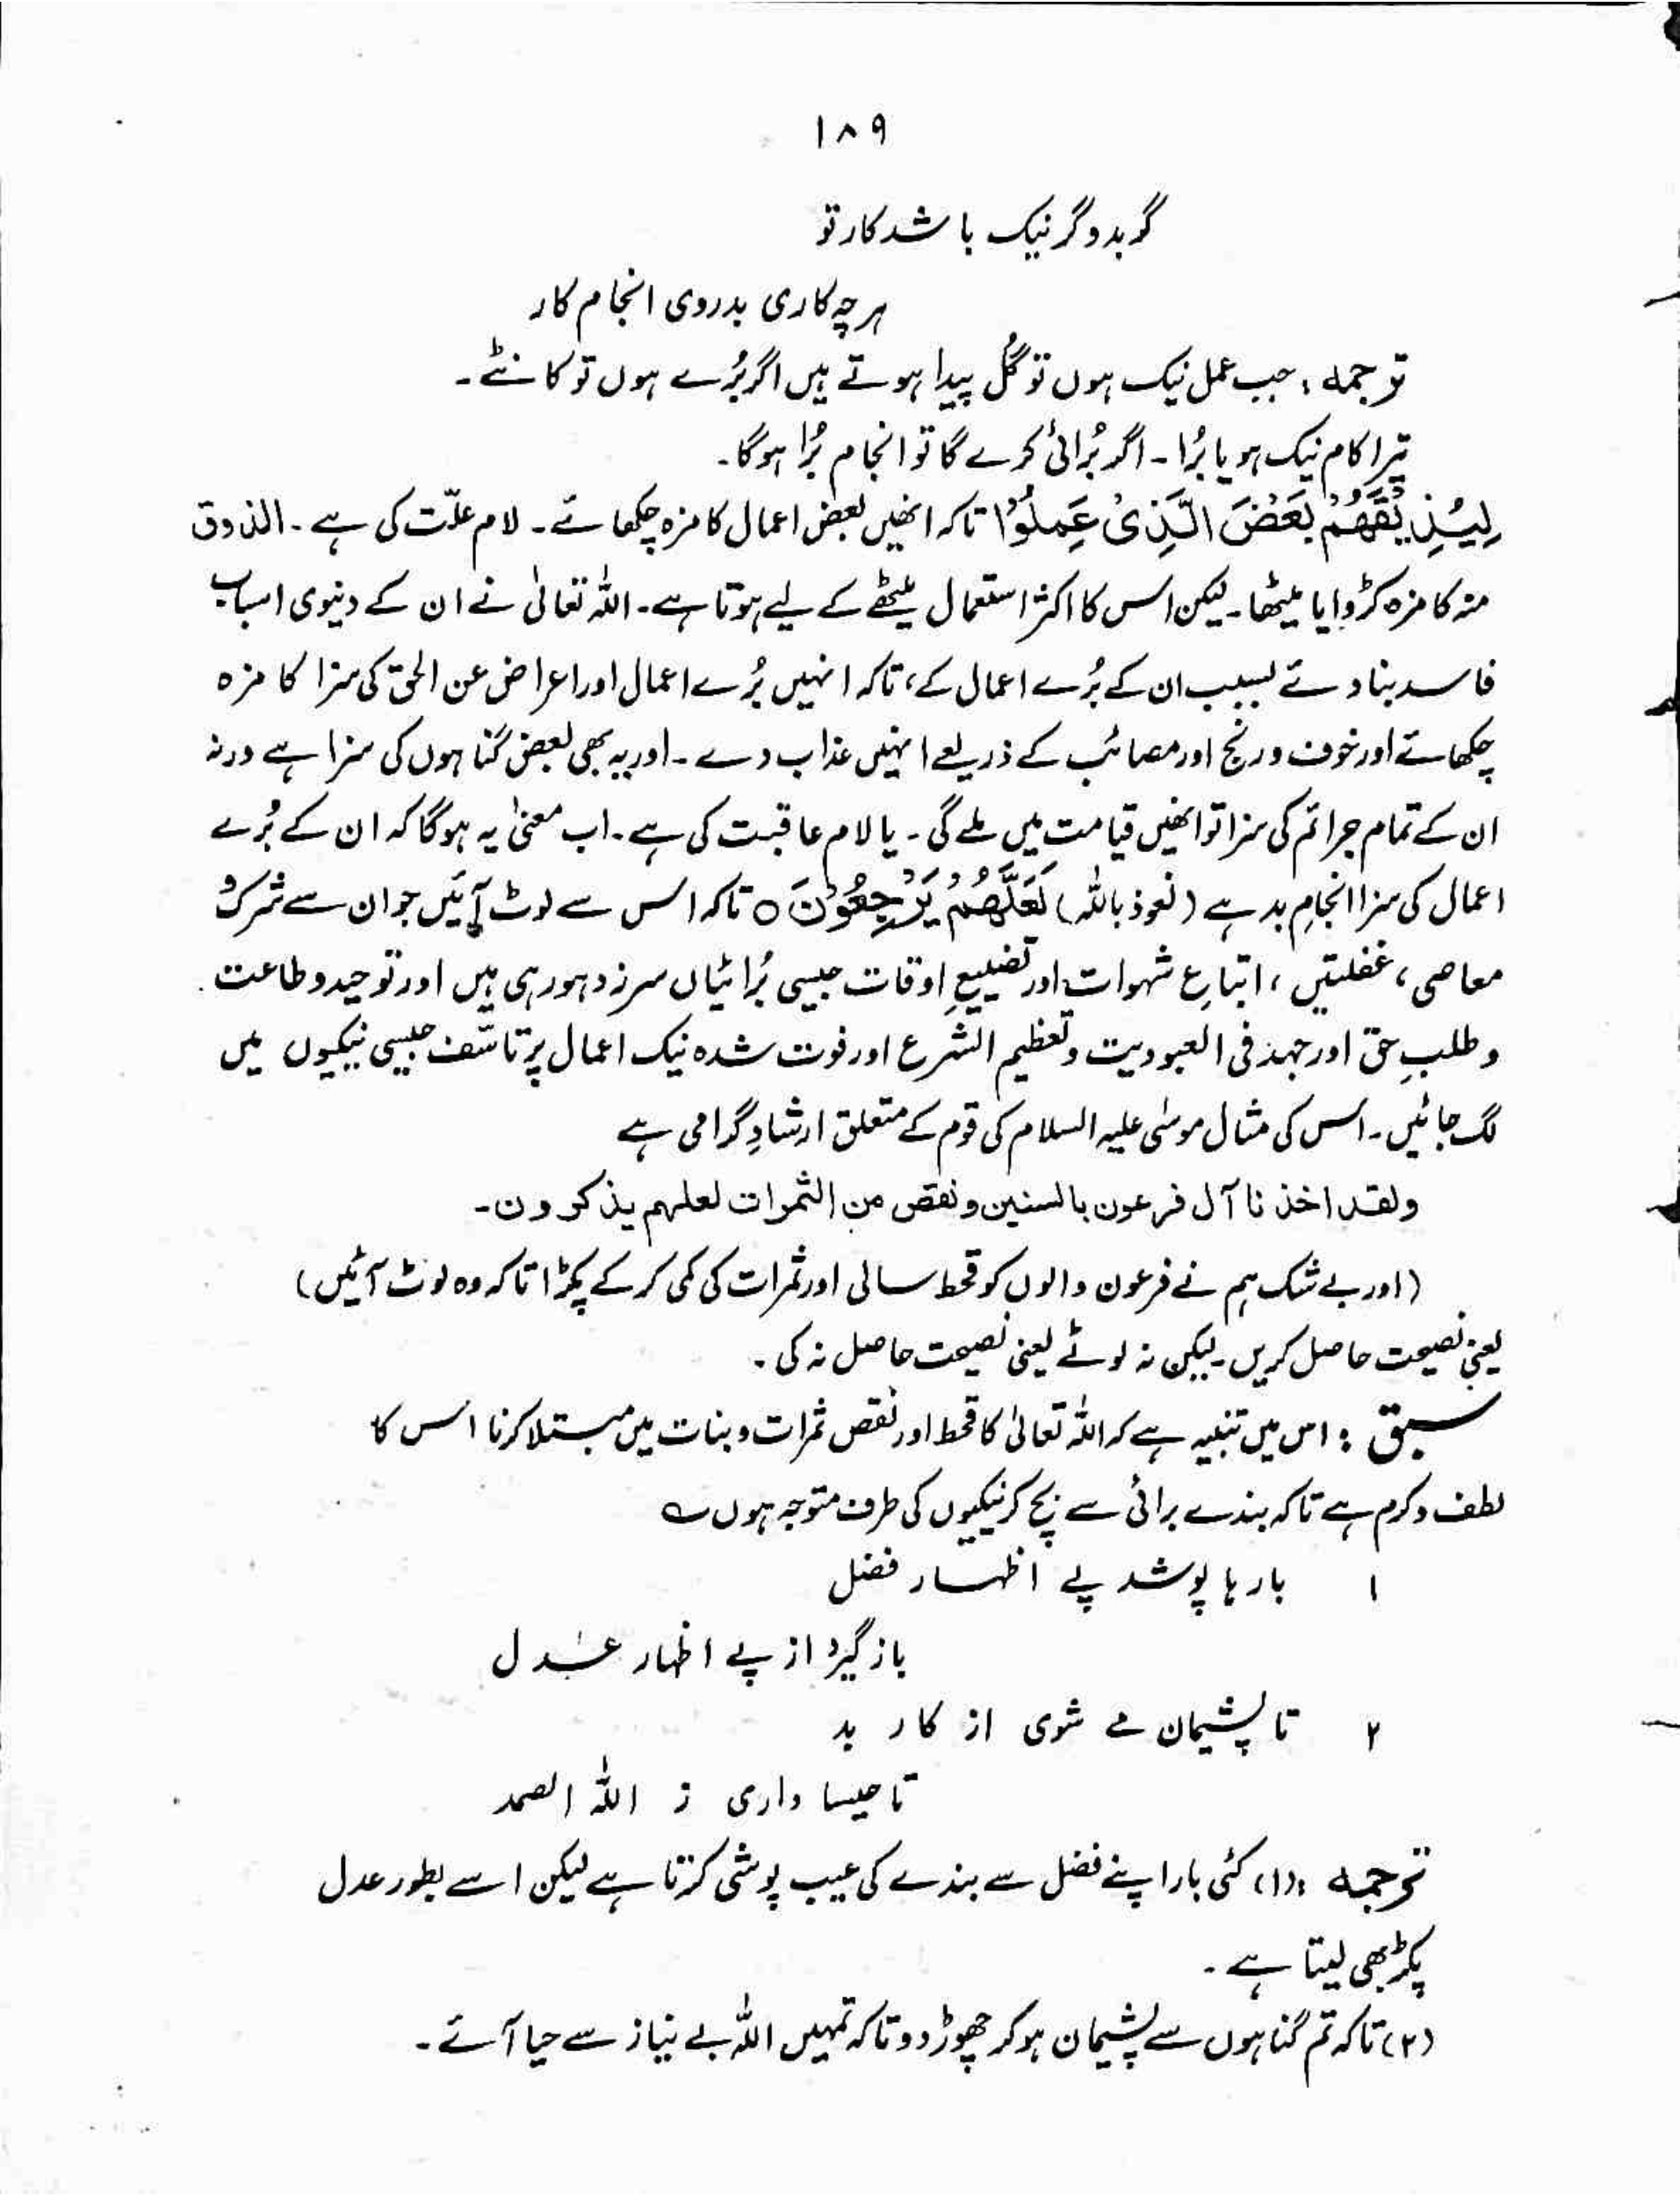 ۱۸۹
گر بد و گر نیک باشد کار تو
ہر چہ کاری بدروی انجام کار
ترجمہ : جب عمل نیک ہوں تو گُل پیدا ہوتے ہیں اگر بُرے ہوں تو کانٹے۔
تیرا کام نیک ہو یا بُرا۔ اگر بُرائی کرے گا تو انجام بُرا ہوگا۔
لِیُذِیْقَهُمْ بَعْضَ الَّذِیْ عَمِلُوْا تاکہ انھیں بعض اعمال کا مزہ چکھائے۔ لام علّت کی ہے۔ الذوق
منہ کا مزہ کڑوا یا میٹھا۔ لیکن اس کا اکثر استعمال میٹھے کے لیے ہوتا ہے۔ اللہ تعالیٰ نے ان کے دنیوی اسباب
فاسد بنا دئے بسبب ان کے بُرے اعمال کے، تاکہ انہیں بُرے اعمال اور اعراض عن الحق کی سزا کا مزہ
چکھائے اور خوف و رنج اور مصائب کے ذریعے انہیں عذاب دے۔ اور یہ بھی بعض گناہوں کی سزا ہے ورنہ
ان کے تمام جرائم کی سزا تو انھیں قیامت میں ملے گی۔ یا لام عاقبت کی ہے۔ اب معنیٰ یہ ہوگا کہ ان کے بُرے
اعمال کی سزا انجامِ بد ہے (نعوذ باللہ) لَعَلَّهُمْ یَرْجِعُوْنَ ○ تاکہ اس سے لوٹ آئیں جو ان سے شرک و
معاصی، غفلتیں، اتباعِ شہوات اور تضییعِ اوقات جیسی بُرائیاں سرزد ہو رہی ہیں اور توحید و طاعت
و طلبِ حق اور جہد فی العبودیت و تعظیم الشرع اور فوت شدہ نیک اعمال پر تاسّف جیسی نیکیوں میں
لگ جائیں۔ اس کی مثال موسیٰ علیہ السلام کی قوم کے متعلق ارشادِ گرامی ہے
ولقد اخذنا آل فرعون بالسنین ونقص من الثمرات لعلهم یذکرون۔
(اور بے شک ہم نے فرعون والوں کو قحط سالی اور ثمرات کی کمی کر کے پکڑا تاکہ وہ لوٹ آئیں)
یعنی نصیحت حاصل کریں۔ لیکن نہ لوٹے یعنی نصیحت حاصل نہ کی۔
سبق : اس میں تنبیہ ہے کہ اللہ تعالیٰ کا قحط اور نقص ثمرات و بنات میں مبتلا کرنا اس کا
لطف و کرم ہے تاکہ بندے برائی سے بچ کر نیکیوں کی طرف متوجہ ہوں ؎
۱ بارہا پوشد پے اظہار فضل
باز گیرد از پے اظہار عدل
۲ تا پشیمان مے شوی از کار بد
تا حیا داری ز اللہ الصمد
ترجمہ : (۱) کئی بار اپنے فضل سے بندے کی عیب پوشی کرتا ہے لیکن اسے بطور عدل
پکڑ بھی لیتا ہے۔
(۲) تاکہ تم گناہوں سے پشیمان ہو کر چھوڑ دو تاکہ تمہیں اللہ بے نیاز سے حیا آئے۔